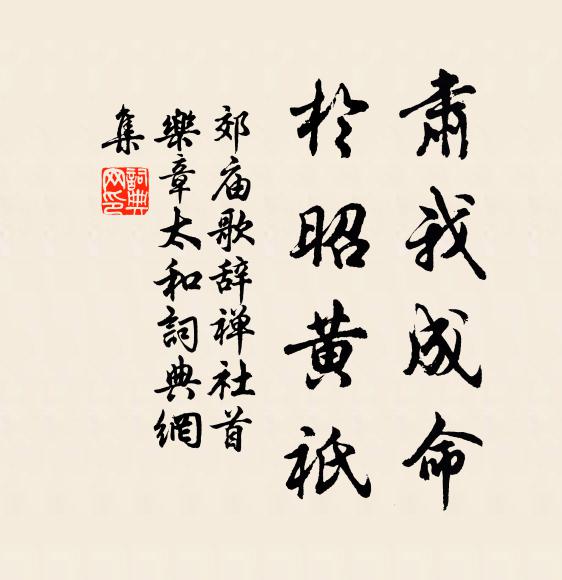 肅我成命
於昭黃祇
郊庙歌辞禅社首
樂章太和詞典網
集
詞典網印